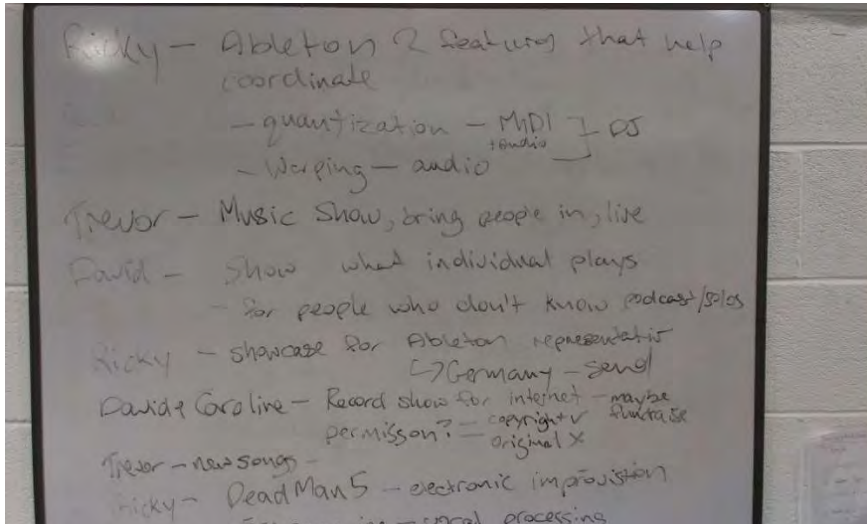 Ricky - Ableton 2 features that help
coordinate
- quantization - MIDI
+ audio
DJ
- Warping - audio
Trevor - Music Show, bring people in, live
David - Show what individual plays
- for people who don't know podcast/solos
Ricky - showcase for Ableton representativ
↳ Germany - send
David + Caroline - Record show for internet - maybe
fundraise
permisson? - copyright ✓
- original X
Trevor - new songs -
Ricky - DeadMan5 - electronic improvistion
vocal processing